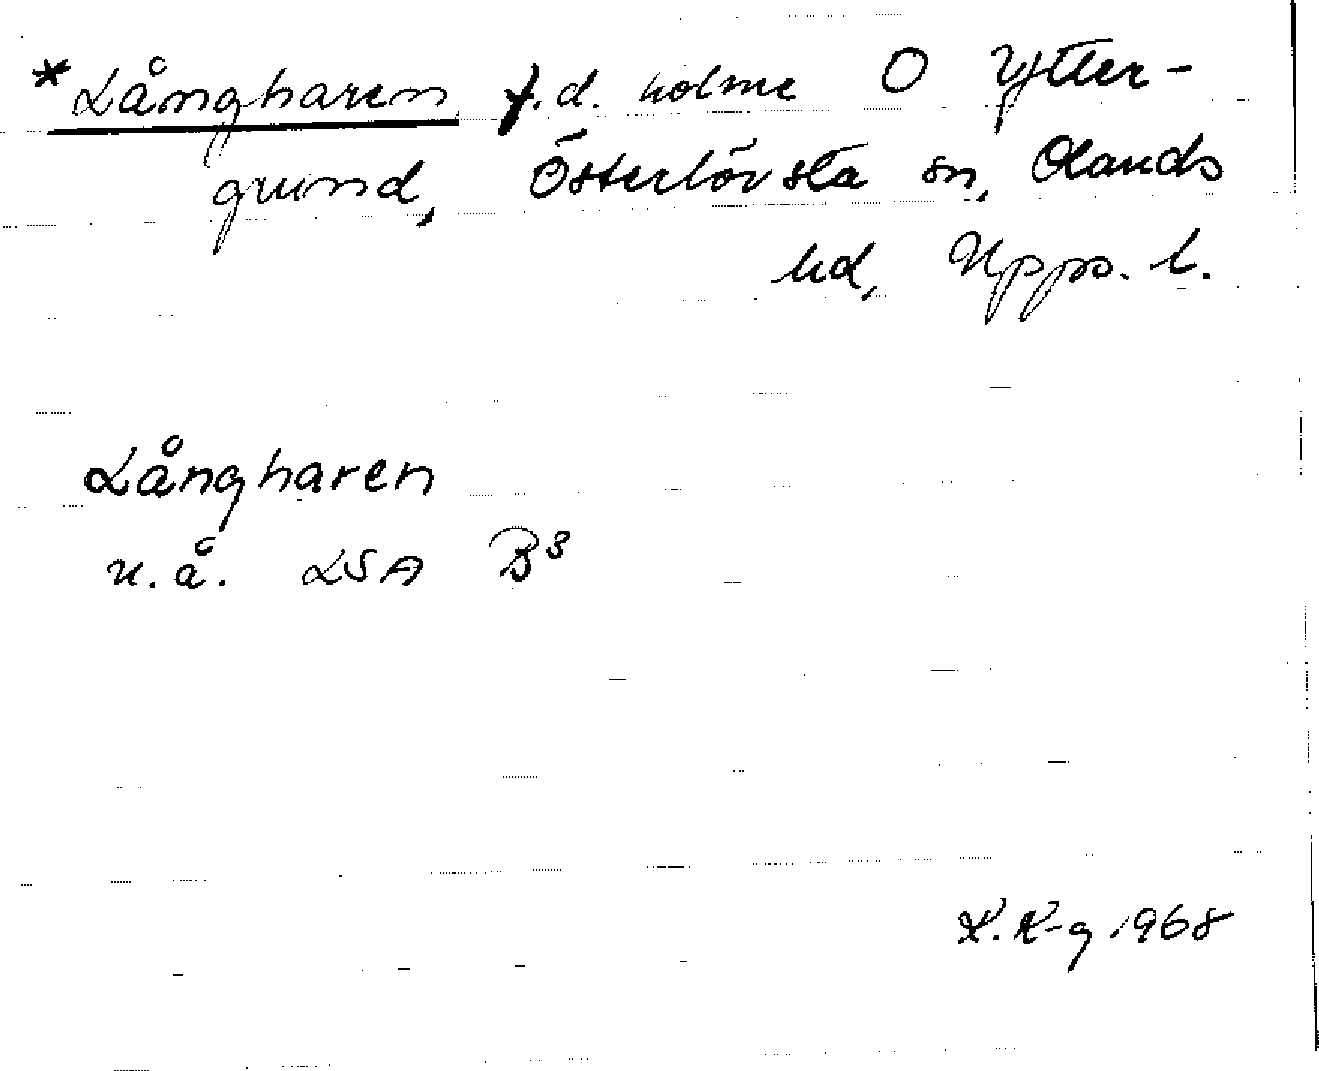 *Långharen f.d. holme O Ytter-
grund, Österlövsta sn, Olands
hd, Upps. l.
Långharen
u.å. LSA B³
K. K-g 1968